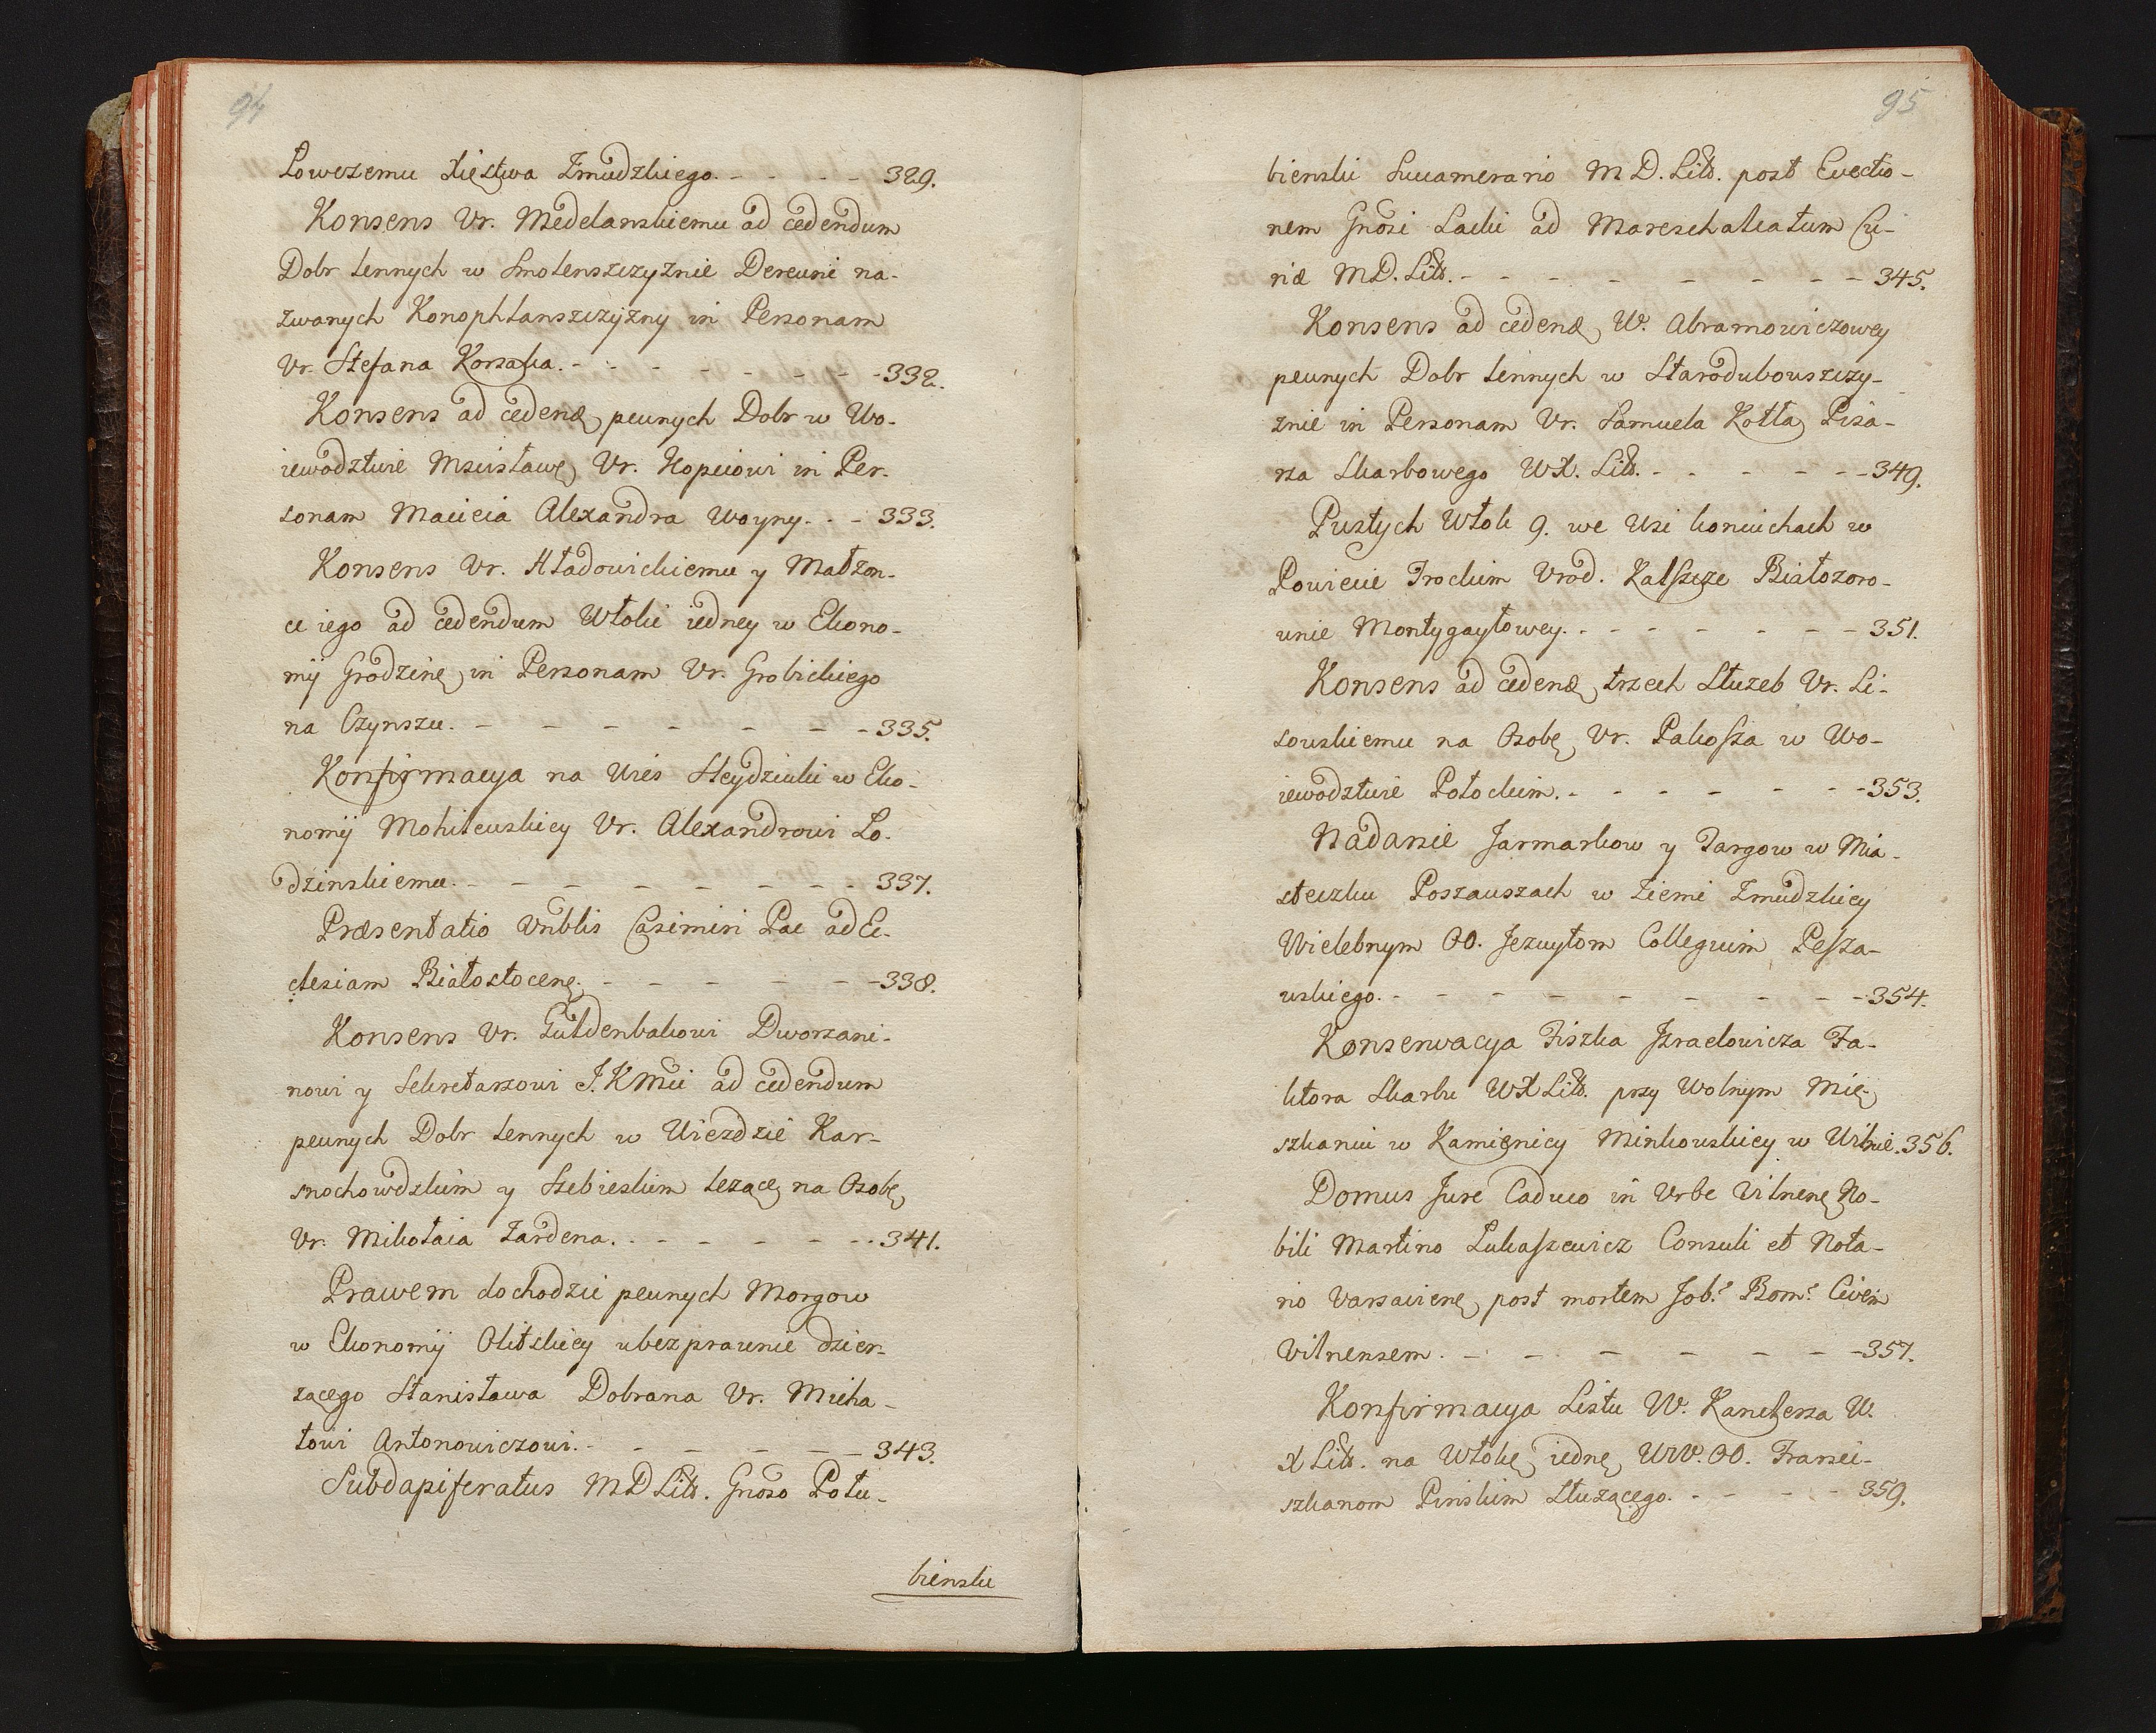 94
Łowczemu Xięstwa Zmudzkiego. - - - - 329.
Konsens Ur. Medelanskiemu ad cedendum
Dobr lennych w Smolenszczyznie Derewni na-
zwanych Konophlanszczyzny in Personam
Ur. Stefana Korsaka. - - - - - - - 332.
Konsens ad cedend, pewnych Dobr w Wo-
iewodztwie Mscisławę Ur. Hopciowi in Per-
sonam Macieia Alexandra Woyny. - - 333.
Konsens Ur. Hładowickiemu y Małzon-
ce iego ad cedendum Włoki iedney w Ekono-
mij Grodzinę in Personam Ur. Grobickiego
na Czynszu. - - - - - - - 335.
Konfirmacya na Wies Steydziuki w Eko-
nomij Mohilewskiey Ur. Alexandrowi Ło-
dzinskiemu. - - - - - - - 337.
Præsentatio Vnblis Casimiri Pac ad Ec-
clesiam Białostocenę. - - - - - - 338.
Konsens Ur. Guldenbalkowi Dworzani-
nowi y Sekretarzowi J.K Mci ad cedendum
pewnych Dobr lennych w Uiezdzie Kar-
snochowdzkim y Szebieskim lezące na Osobę
Ur. Mikołaia Zardena. - - - - - - 341.
Prawem dochodzic pewnych Morgow
w Ekonomij Olitskiey ubezprawnie dzier-
zącego Stanisława Dobrana Ur. Micha-
łowi Antonowiczowi. - - - - - - 343.
Subdapiferatus M D Litt. Gnoso Połu-
bienski
95
bienski Succamerario M D. Litt. post Evectio-
nem Gnosi Lacki ad Mareschalcatum Cu-
riæ M D. Litt. - - - - - - - 345.
Konsens ad cedend, W. Abramowiczowey
pewnych Dobr lennych w Starodubowszczy-
znie in Personam Ur. Samuela Kotła, Pisa-
rza Skarbowego W X. Litt. - - - - - 349.
Pustych Włok 9. we Wsi koniuchach w
Powiecie Trockim Urod. Kalszcze Białozoro-
wnie Montygayłowey. - - - - - - 351.
Konsens ad cedend, trzech Służeb Ur. Li-
sowskiemu na Osobę, Ur. Pakosza w Wo-
iewodztwie Połockim. - - - - - - 353.
Nadanie Jarmarkow y Targow w Mia-
steczku Poszauszach w Ziemi Zmudzkiey
Wielebnym OO. Jezuytom Collegium Pesza-
wskiego. - - - - - - - - 354.
Konserwacya Fiszka Jzraelowicza Fa-
ktora Skarbu W X Litt. przy Wolnym Mię-
szkaniu w Kamienicy Minkowskiey w Wilnie. 356.
Domus Jure Caduco in Urbe Vilnenę No-
bili Martino Łukaszewicz Consuli et Nota-
rio Varsavienę, post mortem Job. Rom. Civem
Vilnensem. - - - - - - - 357.
Konfirmacya Listu W. Kanclerza W.
X Litt. na Włokę iednę, WW. OO. Franci-
szkanom Pinskim Służącego. - - - - 359.